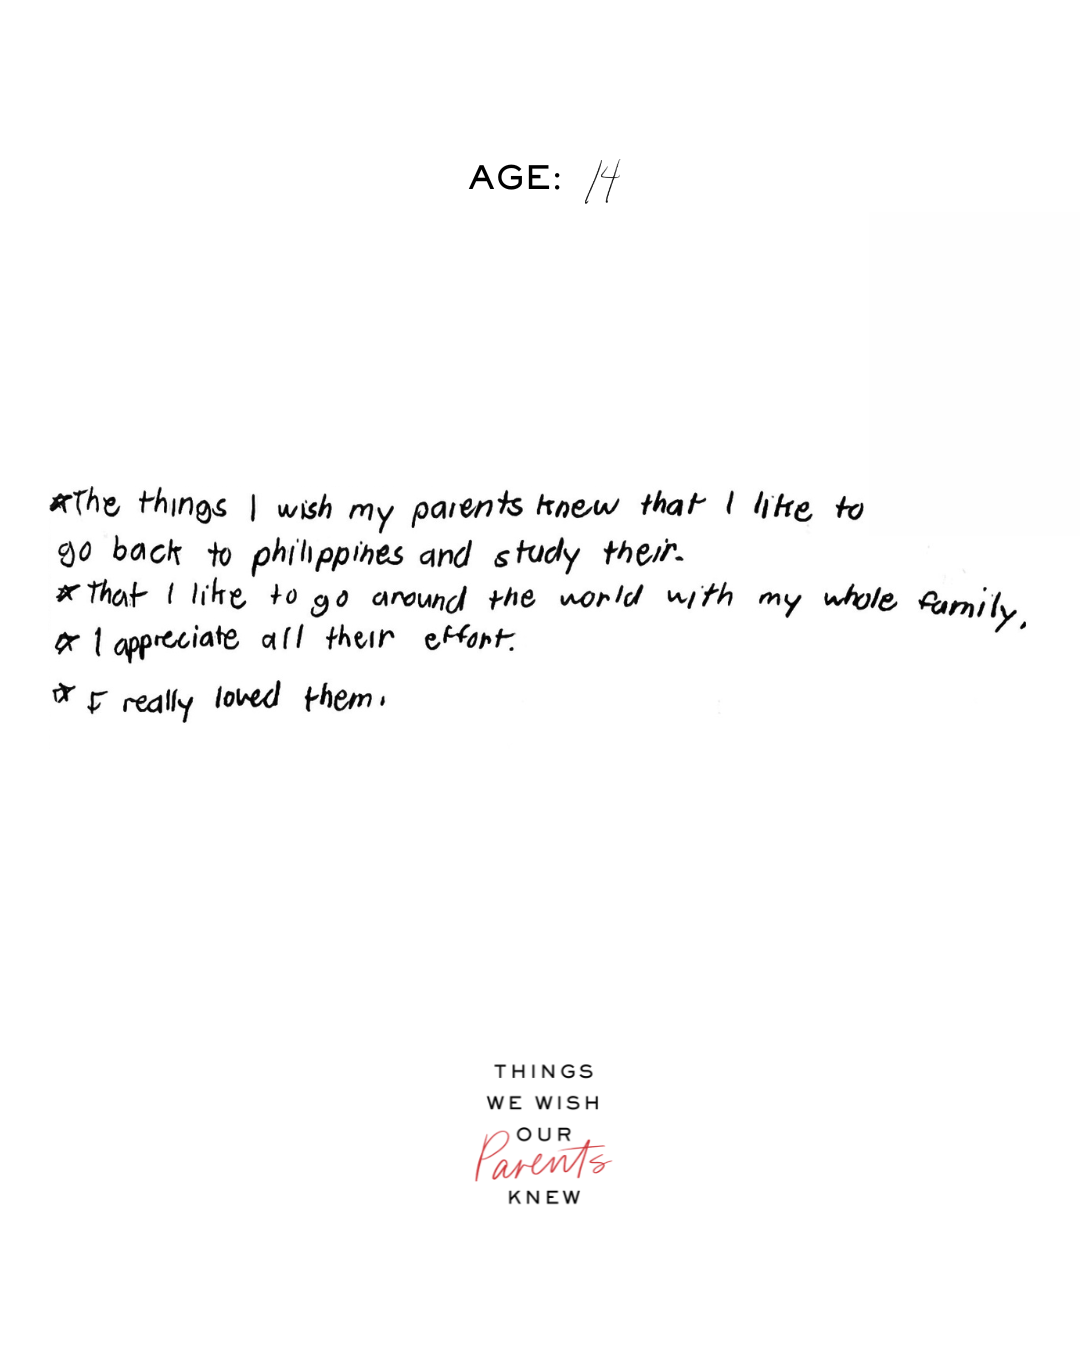 AGE: 14
☆The things I wish my parents knew that I like to
go back to philippines and study their.
☆ That I like to go around the world with my whole family.
☆ I appreciate all their effort.
☆ I really loved them.
THINGS
WE WISH
OUR
Parents
KNEW